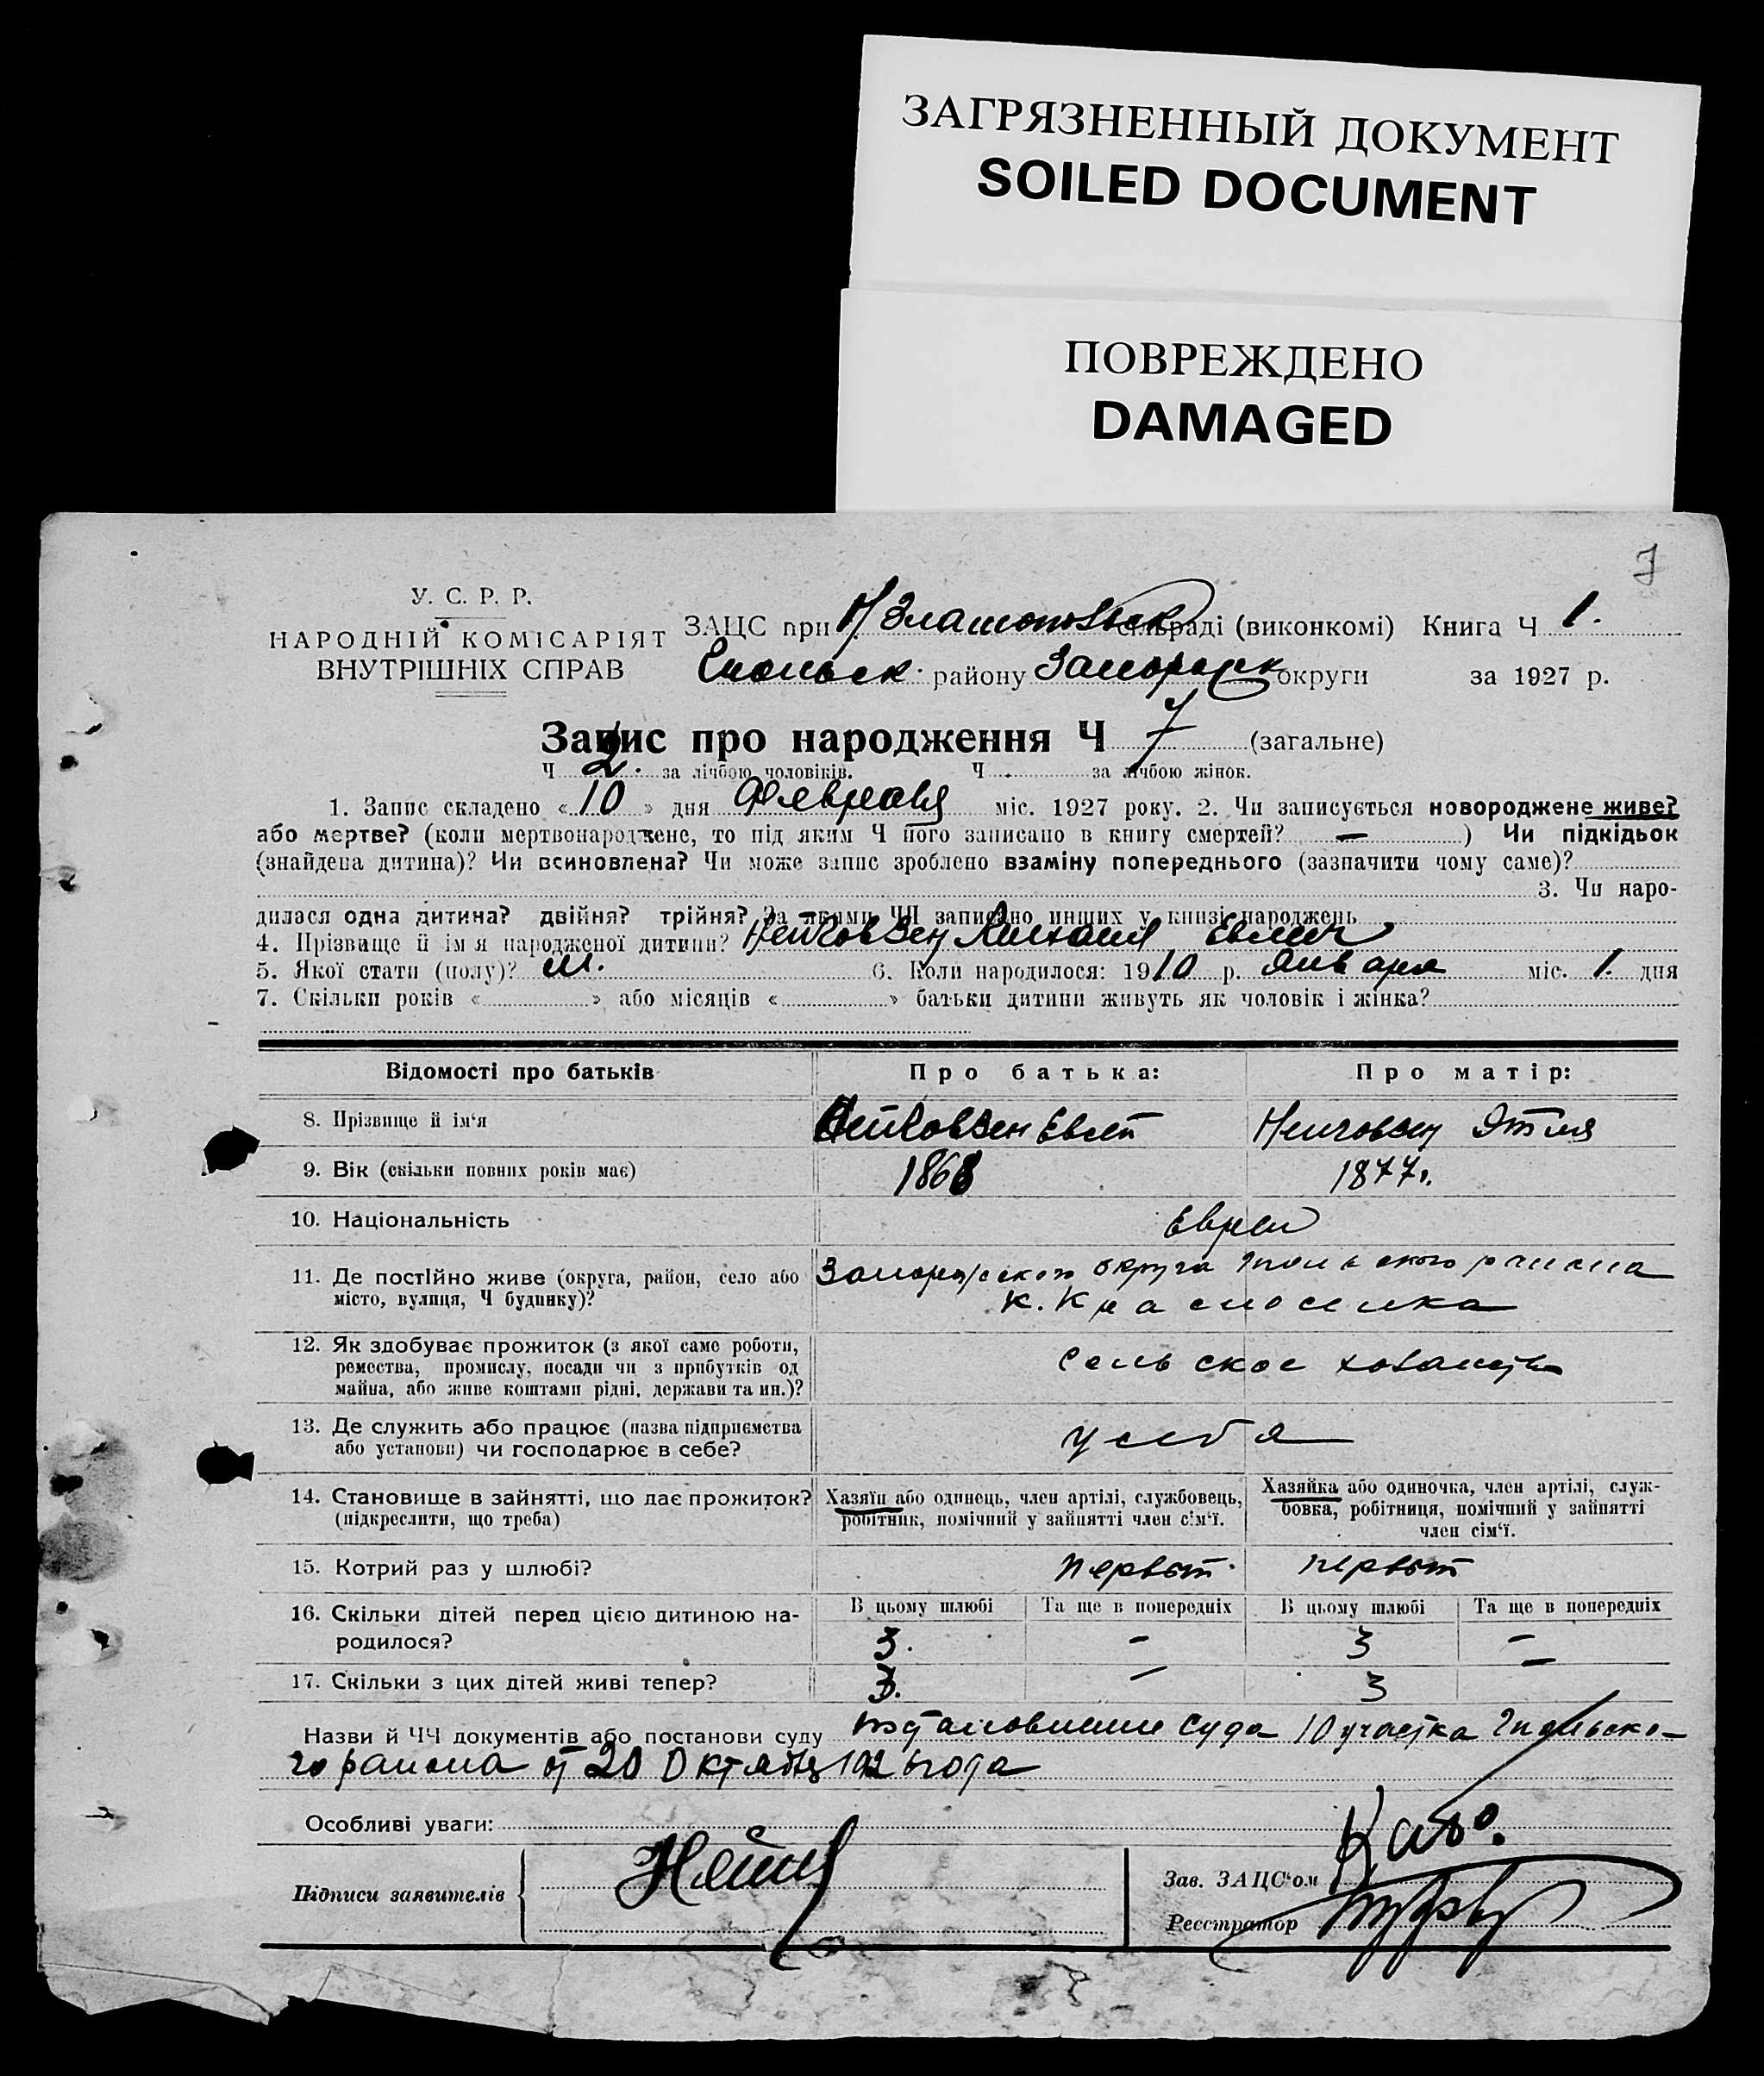 ЗАГРЯЗНЕННЫЙ ДОКУМЕНТ
SOILED DOCUMENT
ПОВРЕЖДЕНО
DAMAGED
У. С. Р. Р.
НАРОДНІЙ КОМІСАРІЯТ
ВНУТРІШНІХ СПРАВ
ЗАЦС при сільраді (виконкомі) Книга Ч 1.
району Запорожск округи за 1927 р.
Запис про народження Ч 7 (загальне)
Ч 2. за лічбою чоловіків. Ч за лічбою жінок.
1. Запис складено «10» дня Февраля міс. 1927 року. 2. Чи записується новороджене живе?
або мертве? (коли мертвонароджене, то під яким Ч його записано в книгу смертей? — ) Чи підкідьок
(знайдена дитина)? Чи всиновлена? Чи може запис зроблено взаміну попереднього (зазначити чому саме)?
3. Чи наро-
дилася одна дитина? двійня? трійня? За якими ЧЧ записано инших у книзі народжень
4. Прізвище й ім я народженої дитини?
5. Якої стати (полу)? м. 6. Коли народилося: 1910 р. Января міс. 1. дня
7. Скільки років « » або місяців « » батьки дитини живуть як чоловік і жінка?
Відомості про батьків Про батька: Про матір:
8. Прізвище й ім'я
9. Вік (скільки повних років має) 1868 1877г.
10. Національність Евреи
11. Де постІйно живе (округа, район, село або Запорожского округа района
місто, вулиця, Ч будинку)? к. Красноселка
12. Як здобуває прожиток (з якої саме роботи, Сельское хозяйство
ремества, промислу, посади чи з прибутків од
майна, або живе коштами рідні, держави та ин.)?
13. Де служить або працює (назва підприємства у себя
або установи) чи господарює в себе?
14. Становище в зайнятті, що дає прожиток? Хазяїн або одинець, член артілі, службовець, Хазяйка або одиночка, член артілі, служ-
(підкреслити, що треба) робітник, помічний у зайнятті член сім'ї. бовка, робітниця, помічний у зайнятті
член сім'ї.
15. Котрий раз у шлюбі? первый первый
16. Скільки дітей перед цією дитиною на- В цьому шлюбі Та ще в попередніх В цьому шлюбі Та ще в попередніх
родилося? 3. – 3 –
17. Скільки з цих дітей живі тепер? 3. – 3 –
Назви й ЧЧ документів або постанови суду Постановление Суда 10 участка
го района от 20 Октября 1926 года
Особливі уваги:
Підписи заявителів
Зав. ЗАЦС'ом
Реєстратор